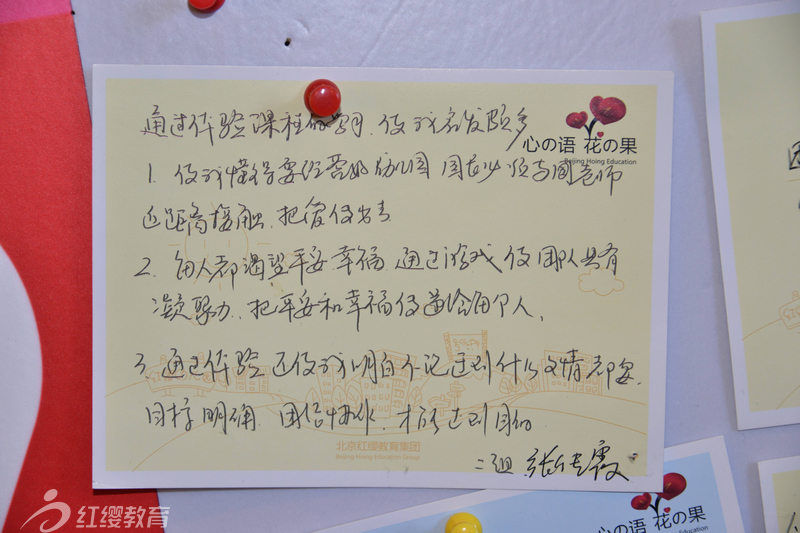 通过体验课程的学习、使我启发颇多
心の语 花の果
Beijing Hoing Education
1. 使我懂得要经营好幼儿园 园长必须与园老师
近距离接触、把爱传出去
2. 每人都渴望平安 幸福 通过游戏 使团队具有
凝聚力、把平安和幸福传递给每个人、
3. 通过体验 还使我明白不论遇到什么事情都要
目标明确 团结协作、才能达到目的
北京红缨教育集团
Beijing Hoing Education Group
二组
红缨教育
心の语 花の果